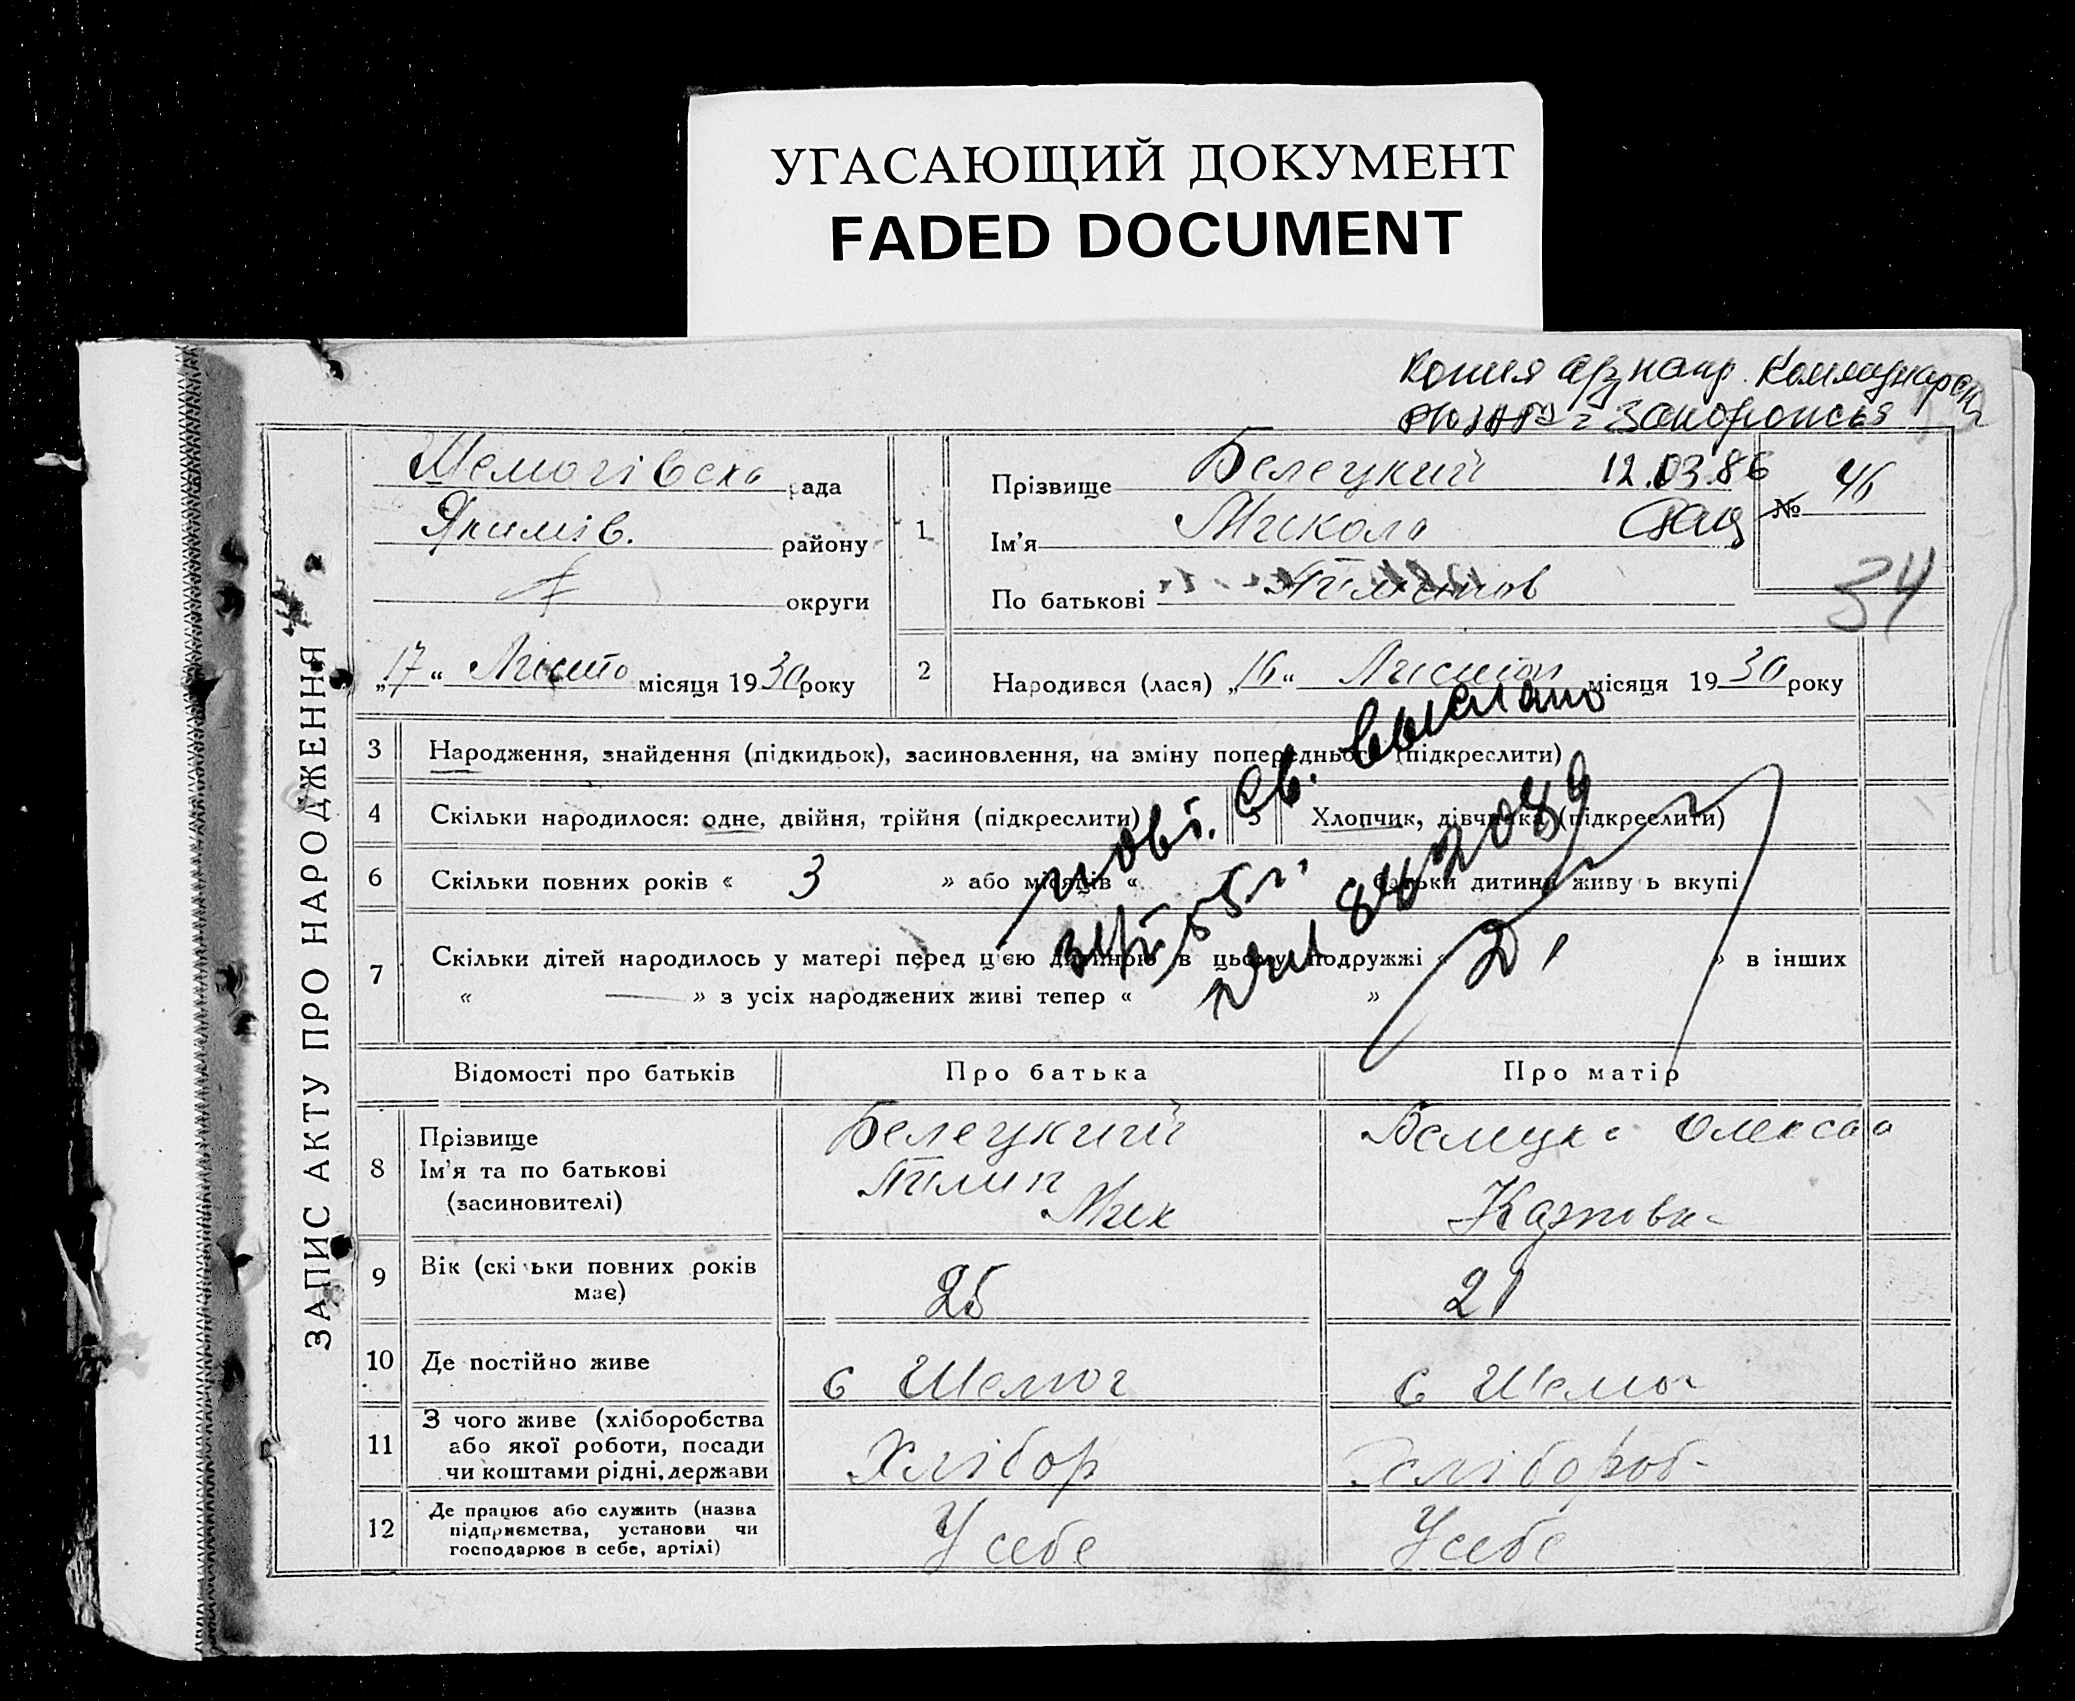 УГАСАЮЩИЙ ДОКУМЕНТ
FADED DOCUMENT
Копия
г Запорожья
ЗАПИС АКТУ ПРО НАРОДЖЕННЯ
Шелюгівська рада
Якимів. району
округи
„17“ Люто місяця 1930 року
1
Прізвище Белецкий
Ім'я Микола
По батькові Пилипов
12.03.86
№ 46
34
2 Народився (лася) „16“ місяця 1930 року
3 Народження, знайдення (підкидьок), засиновлення, на зміну попереднього (підкреслити)
4 Скільки народилося: одне, двійня, трійня (підкреслити)
5 Хлопчик, дівчинка (підкреслити)
6 Скільки повних років « 3 » або місяців « батьки дитини живуть вкупі
7 Скільки дітей народилось у матері перед цією дитиною в цьому подружжі « » в інших
« — » з усіх народжених живі тепер « »
Повт. св. выслано
Відомості про батьків
Про батька
Про матір
8 Прізвище
Ім'я та по батькові
(засиновителі)
Белецкий
Пилип
Мик
Белецка
Карповна
9 Вік (скільки повних років
має)
25
21
10 Де постійно живе
с Шелюг
с Шелюг
11 З чого живе (хліборобства
або якої роботи, посади
чи коштами рідні, держави
Хлібор
Хлібороб
12 Де працює або служить (назва
підприємства, установи чи
господарює в себе, артілі)
У себе
У себе